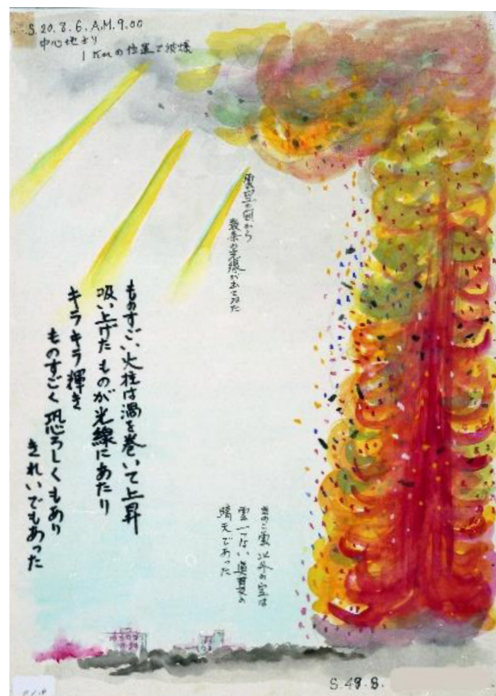 S.20.8.6. A.M.9.00
中心地より
1Kmの位置で被爆
数条の光線がおでゐた
ものすごい火柱は渦を巻いて上昇
吸い上げたものが光線にあたり
キラキラ輝き
ものすごく恐ろしくもあり
きれいでもあった
きのこ雲以外の空は
雲一つない真夏の
晴天であった
S.49.8.